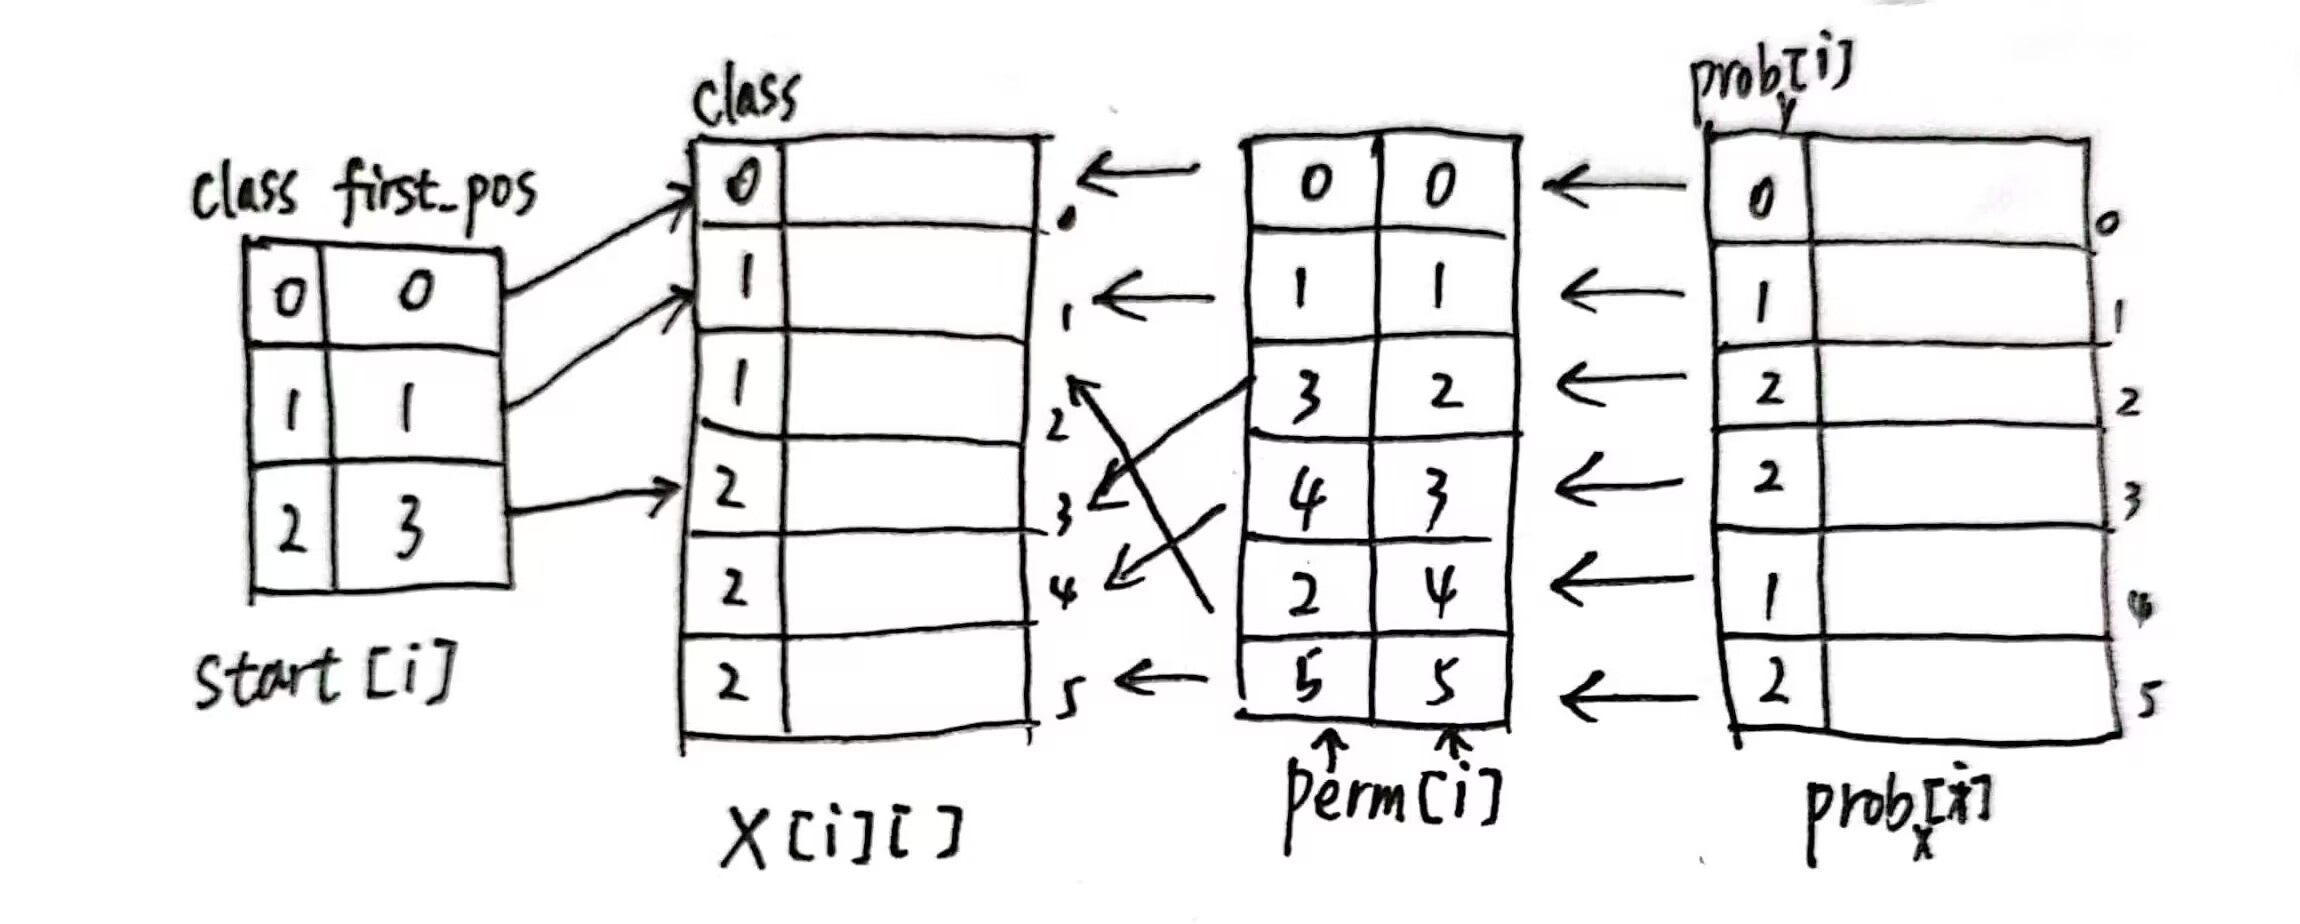 class first_pos
0 0
1 1
2 3
start [i]
class
0
1
1
2
2
2
0
1
2
3
4
5
X [i] [ ]
0 0
1 1
3 2
4 3
2 4
5 5
perm [i]
prob y [i]
0
1
2
2
1
2
0
1
2
3
4
5
prob x [i]